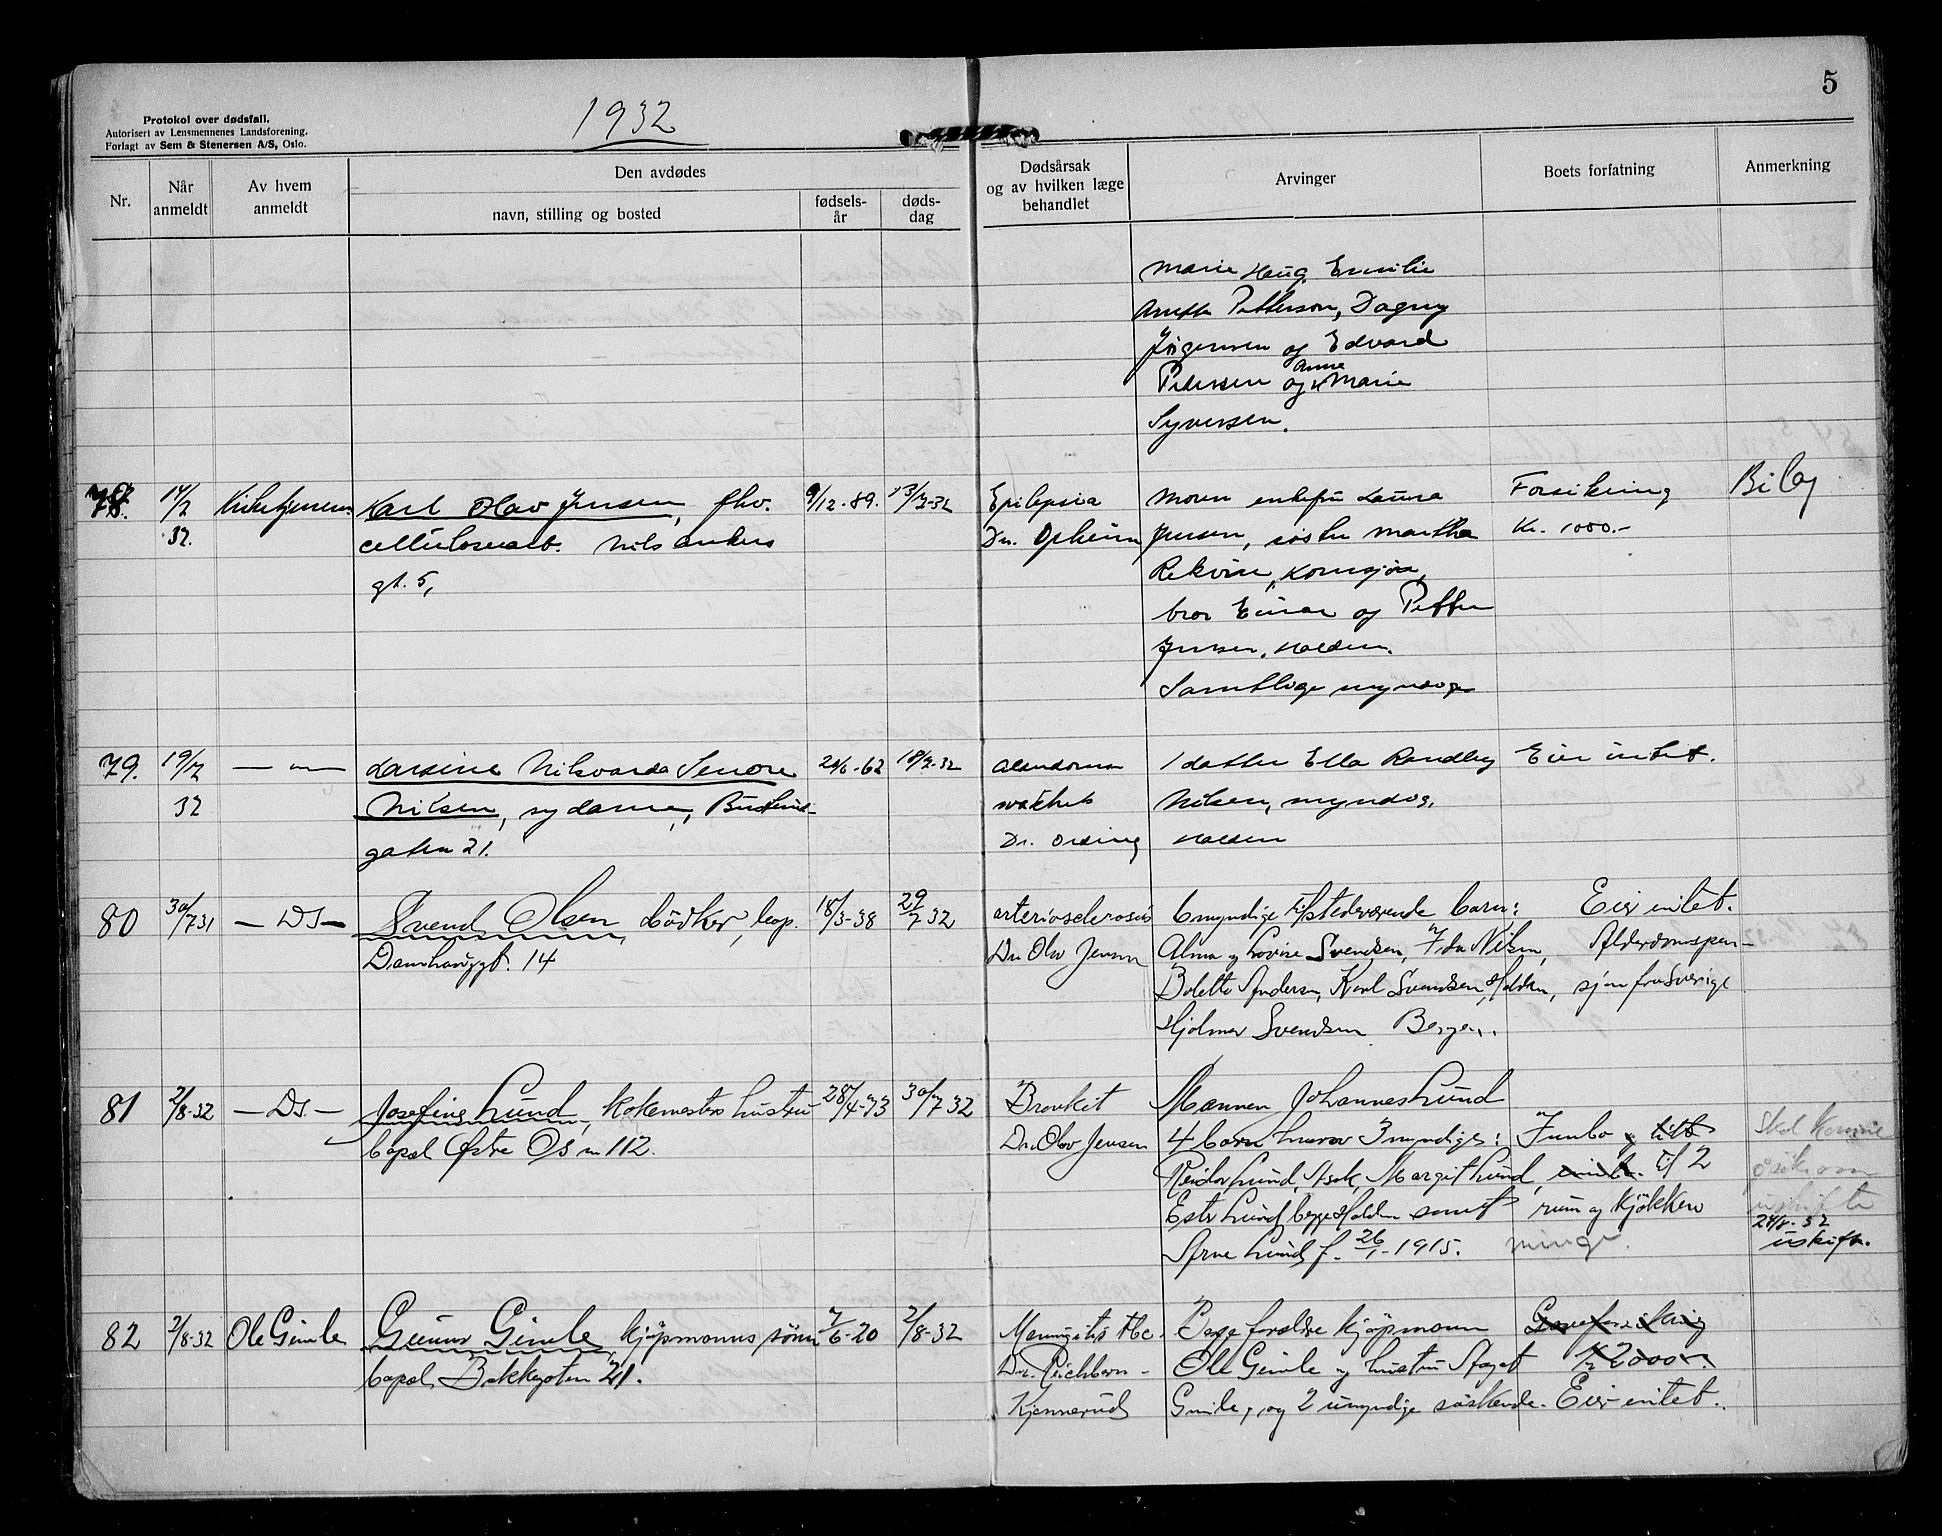 5
1932
Protokol over dødsfall.
Autorisert av Lensmennenes Landsforening.
Forlagt av Sem & Stenersen A/S, Oslo.
Nr.
Når anmeldt
Av hvem anmeldt
Den avdødes
navn, stilling og bosted
fødsels-år
døds-dag
Dødsårsak og av hvilken læge behandlet
Arvinger
Boets forfatning
Anmerkning
Marie Haug, Emilie
Petterson, Dagny
Jörgensen og Edvard
Anne
Pedersen og Marie
Syversen.
78. 14/7 Karl Olav Jensen, fhv. 9/12-89. 13/7-32 Epilepsia Moren enkefru Laura Forsikring Bilag
32. cellulosearb. Nils Anders Dr. Opheim Jensen, søster Martha Kr. 1000.-
gt. 5, Kornsjön,
bror Einar og Petter
Jensen, Halden.
Samtlige myndige
79. 19/7 — " — Larsine Nilsvarda Senore 24/6-62 18/7-32 Alderdoms 1 datter Ella Randby Eier intet.
32 Nilsen, sydame, svakhet Nilsen, myndig,
gaten 21. Dr. Ording Halden
80 30/7 31 — Ds — Svend Olsen, bödker, bop. 18/3-38 29/7 32 arteriosclerosis 6 myndige tilstedeværende barn: Eier intet.
Damhauggt. 14 Dr. Olav Jensen Alma og Lovise Svendsen, Ida Nilsen, Alderdomspen-
Bolette Andersen, Karl Svendsen, Halden, sjon fra Sverige
Hjalmar Svendsen Bergen.
81 2/8-32 — Ds — Josefine Lund, kokemesters hustru 28/4-73 30/7 32 Bronkit Mannen Johannes Lund
bopæl Østre Os n 112. Dr. Olav Jensen 4 barn hvorav 3 myndige: Innbo og litt Skal komme
Reidar Lund, Ask, Margit Lund, til 2
Ester Lund begge Halden samt rum og kjökken uskifte
Arne Lund f. 26/1-1915. 24/8-32
uskifte.
82 2/8-32 Ole Gimle Gunnar Gimle, kjöpmanns sönn 7/6-20 2/8-32 Meningitis tbc. Begge foreldre kjöpmann
bopæl Bakkegaten 21. Dr. Eichborn- Ole Gimle og hustru Aagot Kr 2000.-
Kjennerud Gimle, og 2 umyndige söskende. Eier intet.